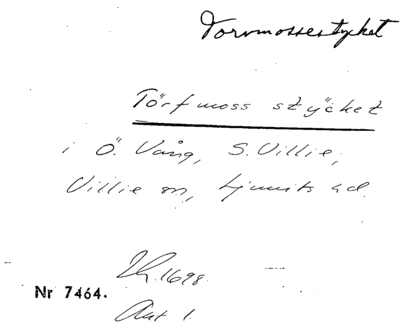 Torvmossestycket
Törfmoss styĕket
i Ö. Vång, S. Villie,
Villie sn, Ljunits hd.
Lh. 1698.
Nr 7464.
Akt 1.